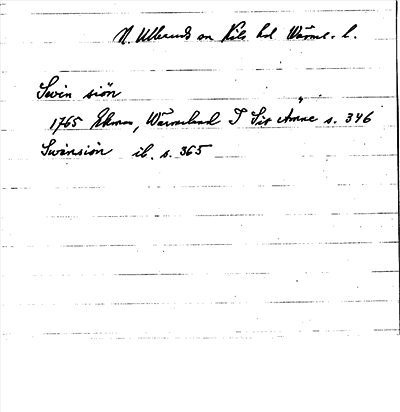 N. Ulleruds sn Kils hd Värml. l.
Swin siön
1765 Ekman, Wärmeland I Sit Ämne s. 346
Swänsiön ib. s. 365